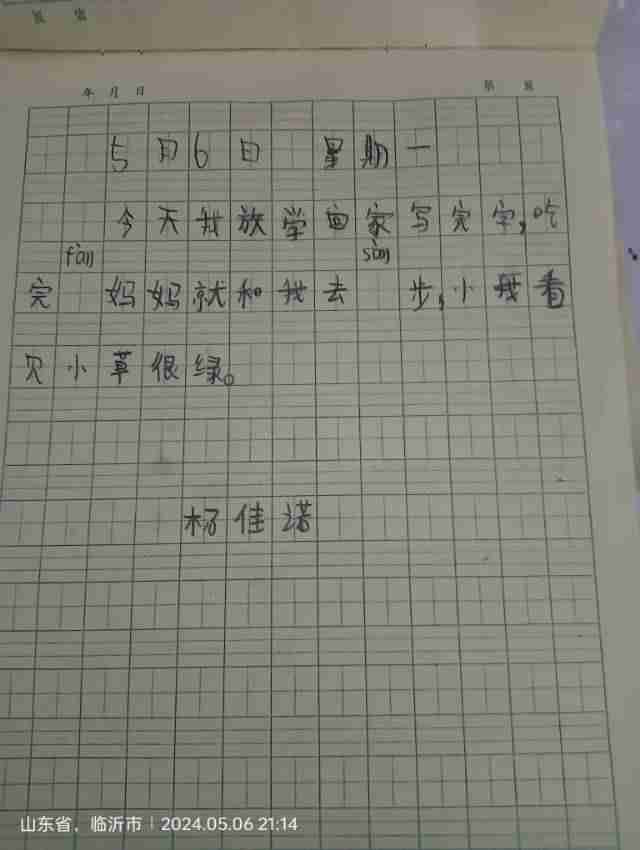 年 月 日 第 页
5月6日 星期一
今天我放学回家写完字,吃
fàn sàn
完 妈妈就和我去 步,小我看
见小草很绿。
杨佳诺
山东省，临沂市 | 2024.05.06 21:14